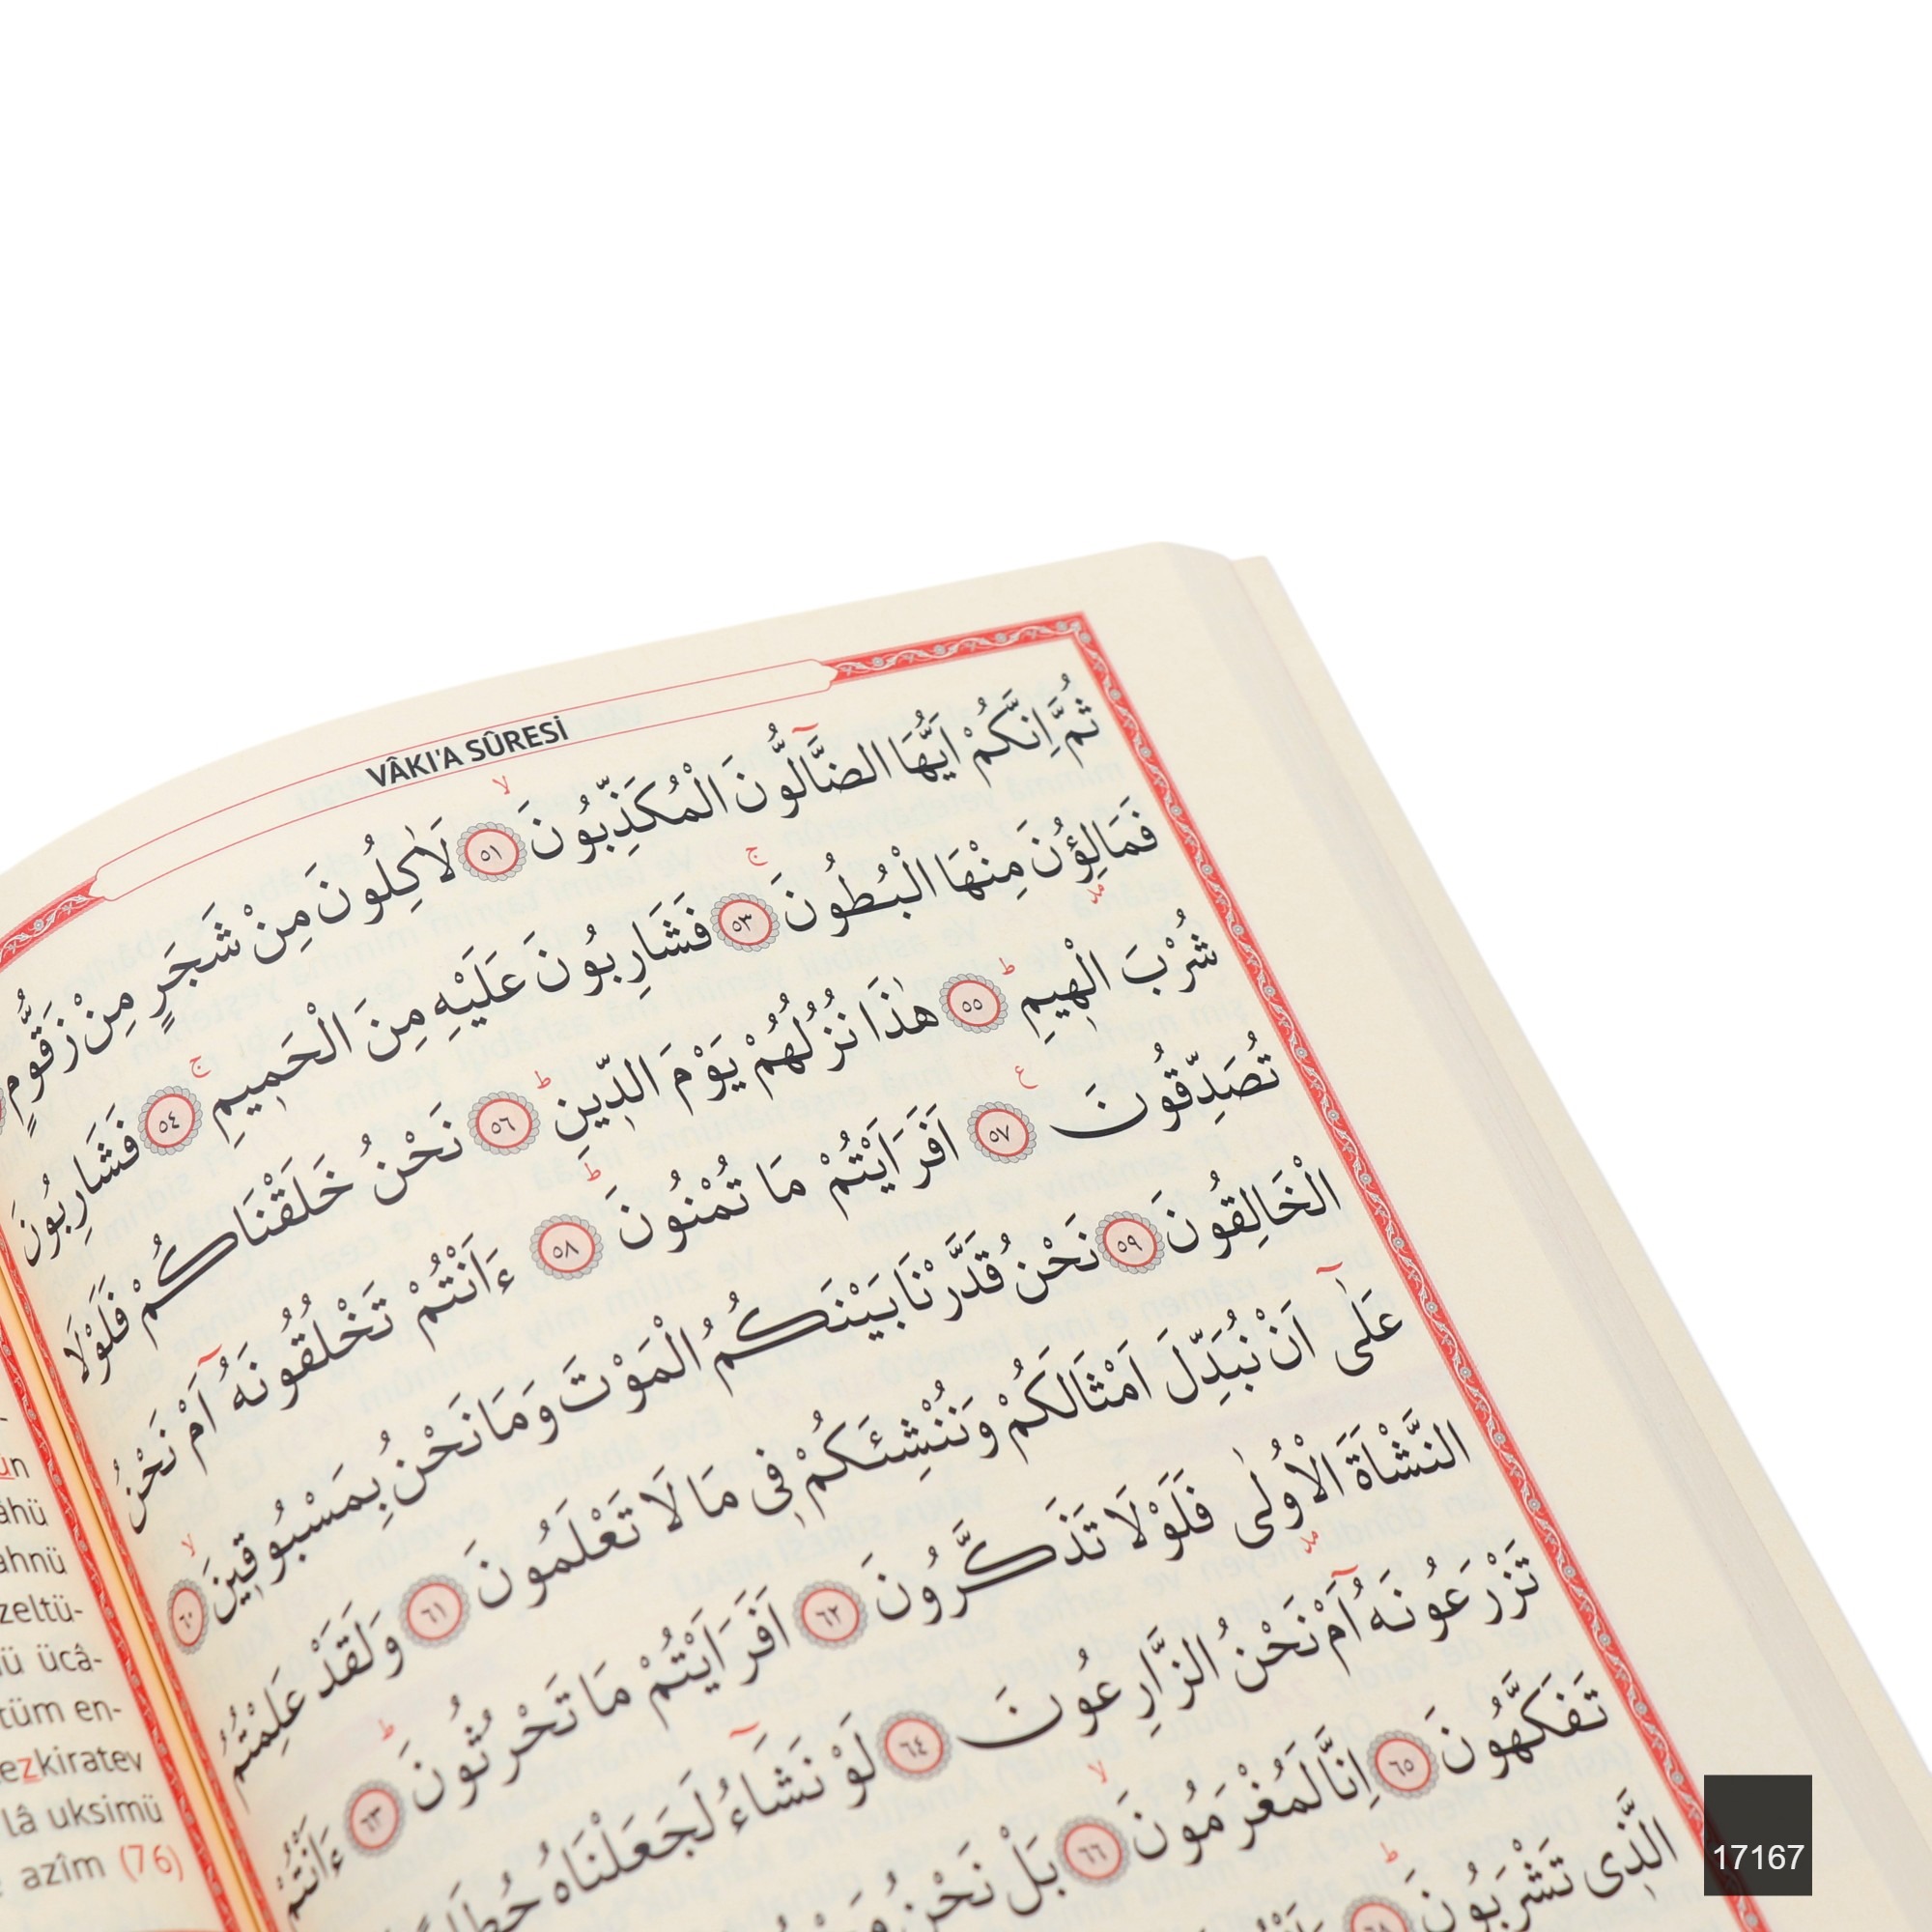 VÂKI'A SÛRESİ
ثُمَّ اِنَّكُمْ اَيُّهَا الضَّٓالُّونَ الْمُكَذِّبُونَۙ ﴿٥١﴾ لَاٰكِلُونَ مِنْ شَجَرٍ مِنْ زَقُّومٍ
فَمَالِؤُ۫نَ مِنْهَا الْبُطُونَۚ ﴿٥٣﴾ فَشَارِبُونَ عَلَيْهِ مِنَ الْحَم۪يمِۚ ﴿٥٤﴾ فَشَارِبُونَ
شُرْبَ الْه۪يمِۜ ﴿٥٥﴾ هٰذَا نُزُلُهُمْ يَوْمَ الدّ۪ينِۜ ﴿٥٦﴾ نَحْنُ خَلَقْنَاكُمْ فَلَوْلَا
تُصَدِّقُونَ ﴿٥٧﴾ اَفَرَاَيْتُمْ مَا تُمْنُونَۜ ﴿٥٨﴾ ءَاَنْتُمْ تَخْلُقُونَهُٓ اَمْ نَحْنُ
الْخَالِقُونَ ﴿٥٩﴾ نَحْنُ قَدَّرْنَا بَيْنَكُمُ الْمَوْتَ وَمَا نَحْنُ بِمَسْبُوق۪ينَۙ ﴿٦٠﴾
عَلٰٓى اَنْ نُبَدِّلَ اَمْثَالَكُمْ وَنُنْشِئَكُمْ ف۪ي مَا لَا تَعْلَمُونَ ﴿٦١﴾ وَلَقَدْ عَلِمْتُمُ
النَّشْاَةَ الْاُو۫لٰى فَلَوْلَا تَذَكَّرُونَ ﴿٦٢﴾ اَفَرَاَيْتُمْ مَا تَحْرُثُونَۜ ﴿٦٣﴾ ءَاَنْتُمْ
تَزْرَعُونَهُٓ اَمْ نَحْنُ الزَّارِعُونَ ﴿٦٤﴾ لَوْ نَشَٓاءُ لَجَعَلْنَاهُ
تَفَكَّهُونَ ﴿٦٥﴾ اِنَّا لَمُغْرَمُونَۙ ﴿٦٦﴾ بَلْ نَحْنُ
الَّذ۪ي تَشْرَبُونَۜ ﴿٦٨﴾
ahnü
zeltü-
ücâ-
tüm en-
ezkiratev
lâ uksimü
azîm (76)
17167